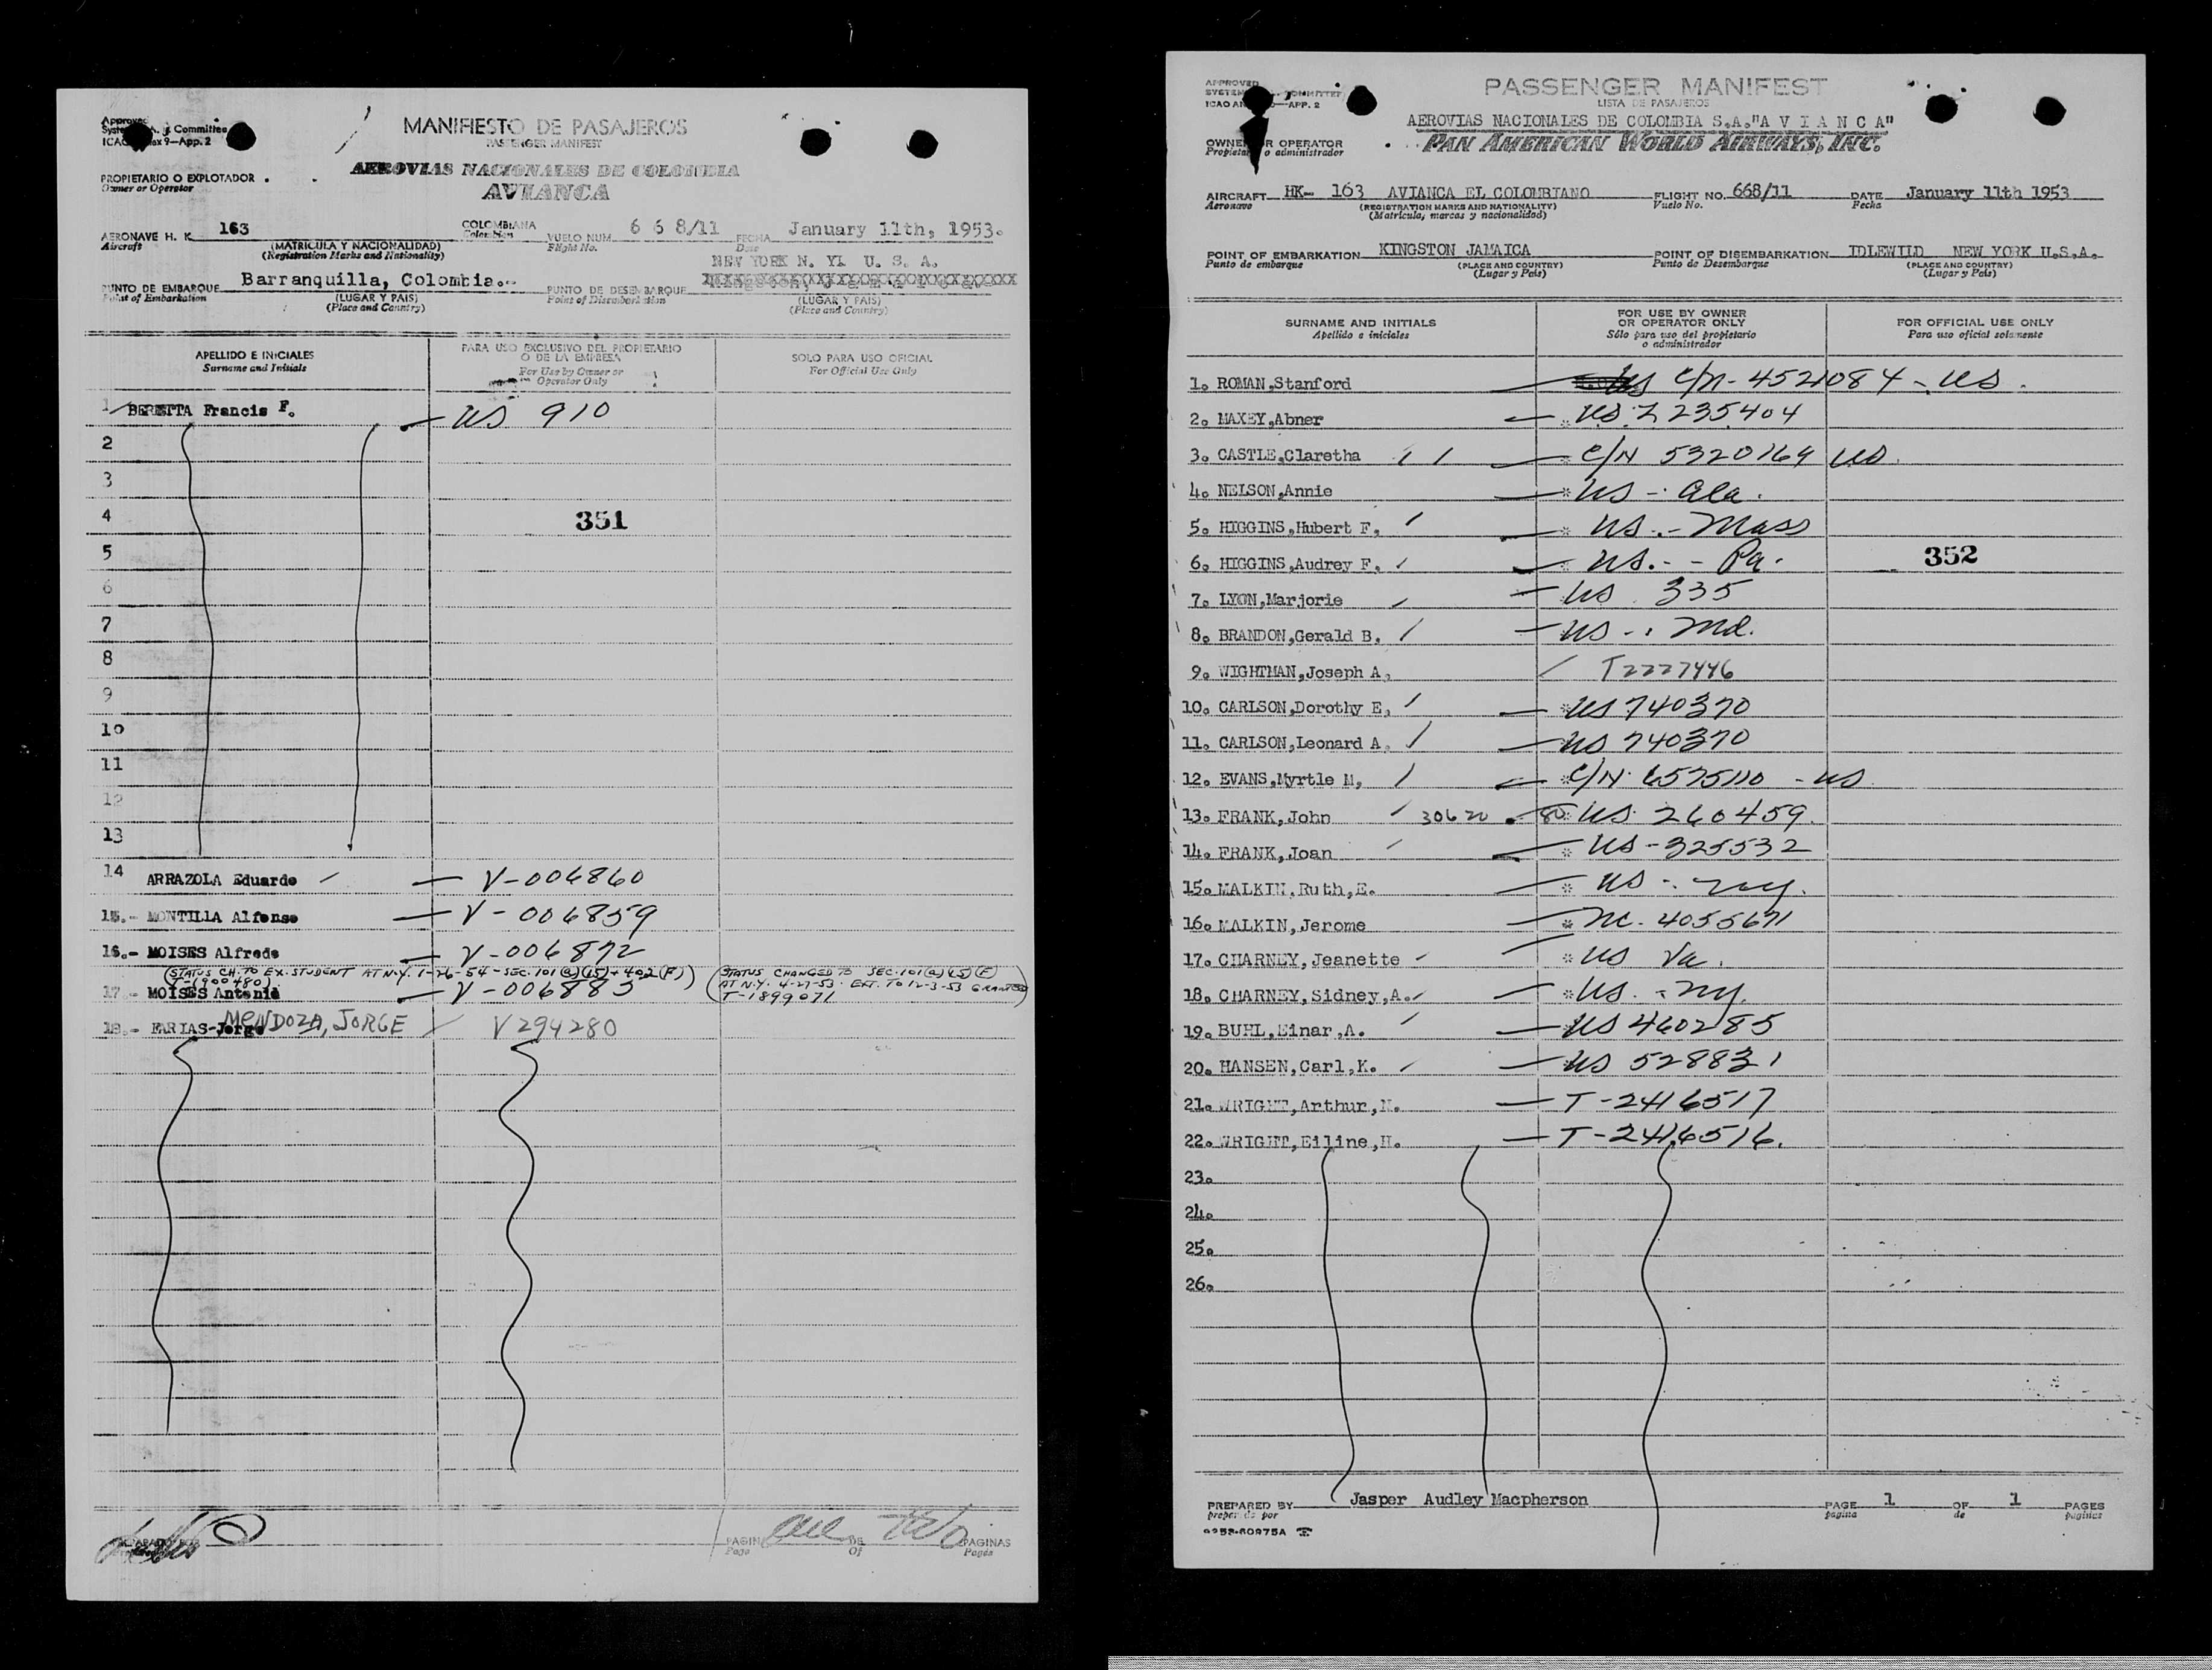 MANIFIESTO DE PASAJEROS
PASSENGER MANIFEST
AEROVIAS NACIONALES DE COLOMBIA
AVIANCA
Approved
Committee
ICAO 9-App. 2
PROPIETARIO O EXPLOTADOR
Owner or Operator
AERONAVE H. K. 163 COLOMBIANA VUELO NUM. 6 6 8/11 FECHA January 11th, 1953.
Aircraft (MATRICULA Y NACIONALIDAD) Colombian Flight No. Date
(Registration Marks and Nationality)
NEW YORK N. YI U. S. A.
PUNTO DE EMBARQUE Barranquilla, Colombia. PUNTO DE DESEMBARQUE
Point of Embarkation (LUGAR Y PAIS) Point of Disembarkation (LUGAR Y PAIS)
(Place and Country) (Place and Country)
APELLIDO E INICIALES PARA USO EXCLUSIVO DEL PROPIETARIO O DE LA EMPRESA SOLO PARA USO OFICIAL
Surname and Initials For Use by Owner or Operator Only For Official Use Only
1 BERETTA Francis F. US 910
2
3
4 351
5
6
7
8
9
10
11
12
13
14 ARRAZOLA Eduardo V-006860
15.- MONTILLA Alfonso V-006859
16.- MOISES Alfredo V-006872
(STATUS CH. TO EX. STUDENT AT N.Y. 1-26-54-SEC. 101(a)(15)+402(F)) (STATUS CHANGED TO SEC. 101(a)(15)(F)
T-1900480) AT N.Y. 4-27-53. EXT. TO 12-3-53 GRANTED
17.- MOISES Antonio V-006883 T-1899071
18.- FARIAS-Jorge MENDOZA, JORGE V294280
PAGINA One DE Two PAGINAS
Page Of Pages
APPROVED
SYSTEM COMMITTEE
ICAO AN -APP. 2
PASSENGER MANIFEST
LISTA DE PASAJEROS
AEROVIAS NACIONALES DE COLOMBIA S.A."A V I A N C A"
OWNER OR OPERATOR PAN AMERICAN WORLD AIRWAYS, INC.
Propietario o administrador
AIRCRAFT HK- 163 AVIANCA EL COLOMBIANO FLIGHT NO. 668/11 DATE January 11th 1953
Aeronave (REGISTRATION MARKS AND NATIONALITY) Vuelo No. Fecha
(Matricula, marcas y nacionalidad)
POINT OF EMBARKATION KINGSTON JAMAICA POINT OF DISEMBARKATION IDLEWILD NEW YORK U.S.A.
Punto de embarque (PLACE AND COUNTRY) Punto de Desembarque (PLACE AND COUNTRY)
(Lugar y País) (Lugar y País)
SURNAME AND INITIALS FOR USE BY OWNER OR OPERATOR ONLY FOR OFFICIAL USE ONLY
Apellido e iniciales Sólo para uso del propietario o administrador Para uso oficial solamente
1. ROMAN,Stanford US C/N-4521084-US.
2. MAXEY,Abner US.Z 235404
3. CASTLE,Claretha C/N 5320169 US.
4. NELSON,Annie US - Ala.
5. HIGGINS,Hubert F. US.- Mass
6. HIGGINS,Audrey F. US.- - Pa. 352
7. LYON,Marjorie US 335
8. BRANDON,Gerald B. US - Md.
9. WIGHTMAN,Joseph A. T2227446
10. CARLSON,Dorothy E. US 740370
11. CARLSON,Leonard A. US 740370
12. EVANS,Myrtle M. C/N 6575110 - US
13. FRANK,John 30620 80 US 260459.
14. FRANK,Joan US-325532
15. MALKIN,Ruth,E. US - NY.
16. MALKIN,Jerome NC-4055671
17. CHARNEY,Jeanette US Va.
18. CHARNEY,Sidney,A. US. - NY.
19. BUHL,Einar,A. US 460285
20. HANSEN,Carl,K. US 528831
21. WRIGHT,Arthur,N. T-2416517
22. WRIGHT,Eiline,H. T-2416516.
23.
24.
25.
26.
PREPARED BY Jasper Audley Macpherson PAGE 1 OF 1 PAGES
preparado por pagina de paginas